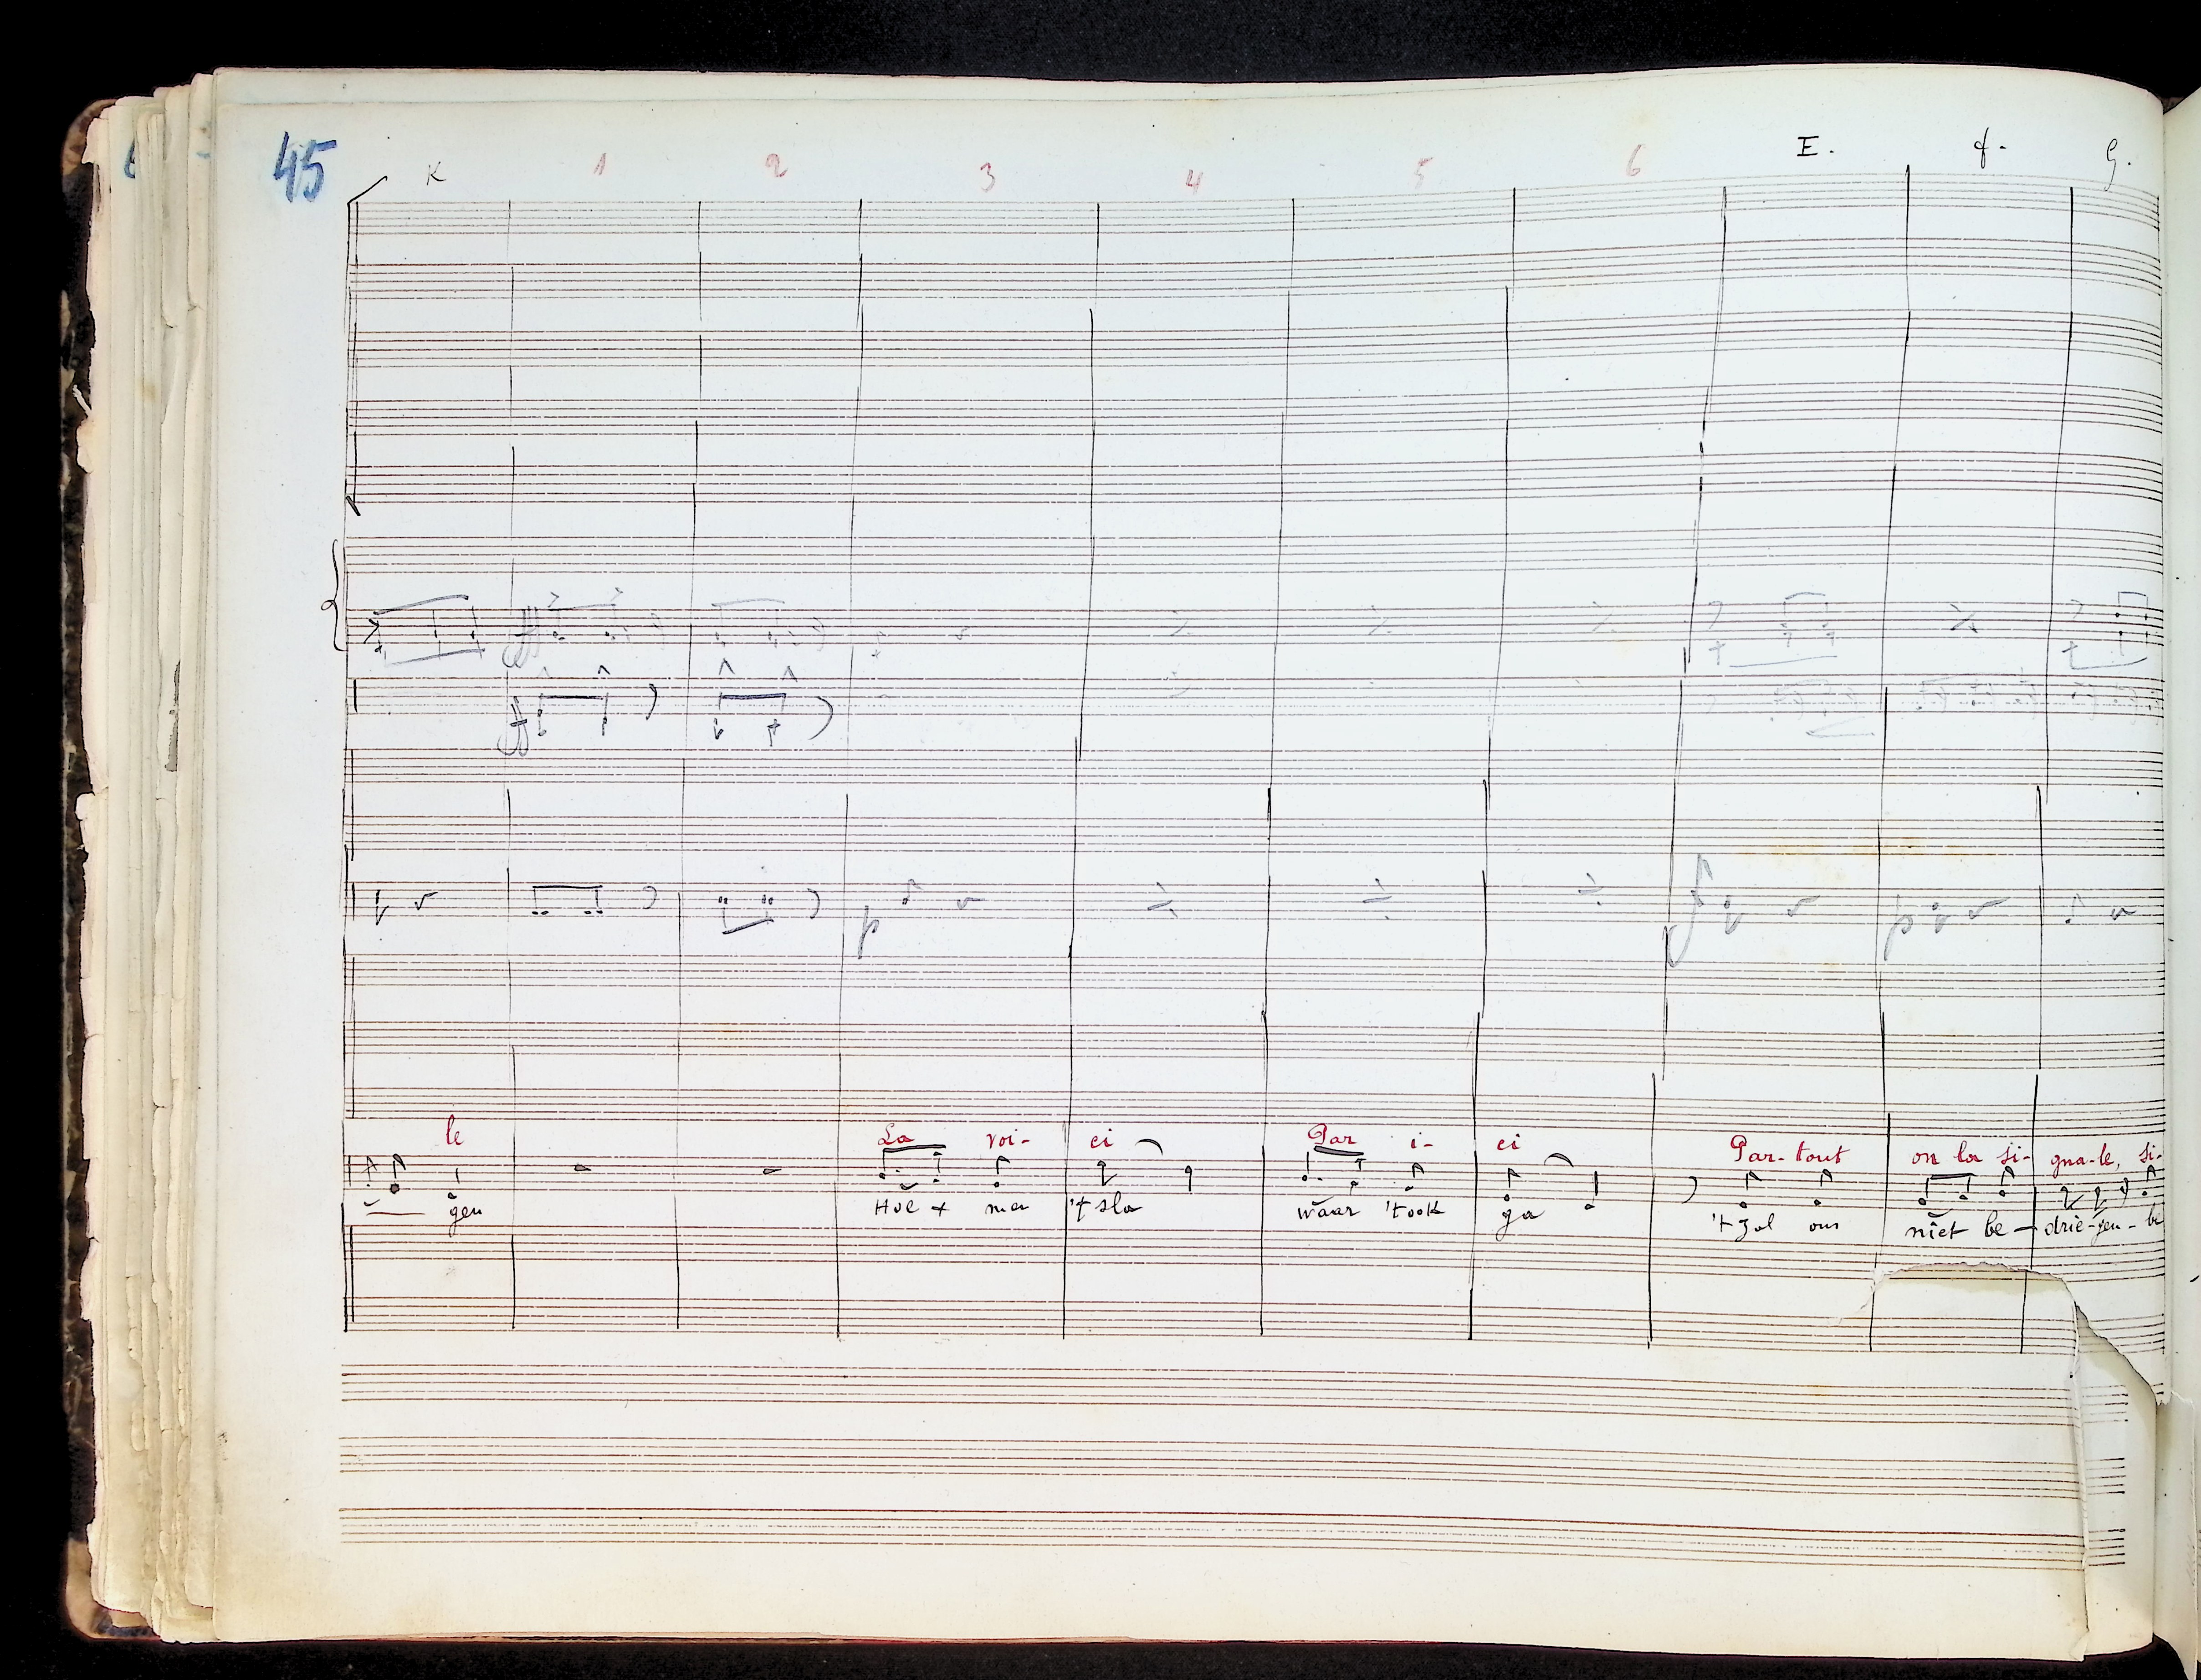 45
K 1 2 3 4 5 6 E. f. G.
ff
ff
p f p
le La voi- ci Par i- ci Par-tout on la si- gna-le, si-
gen Hoe + men 't sla waar 't ook ga 't zal ons niet be- drie-gen- be